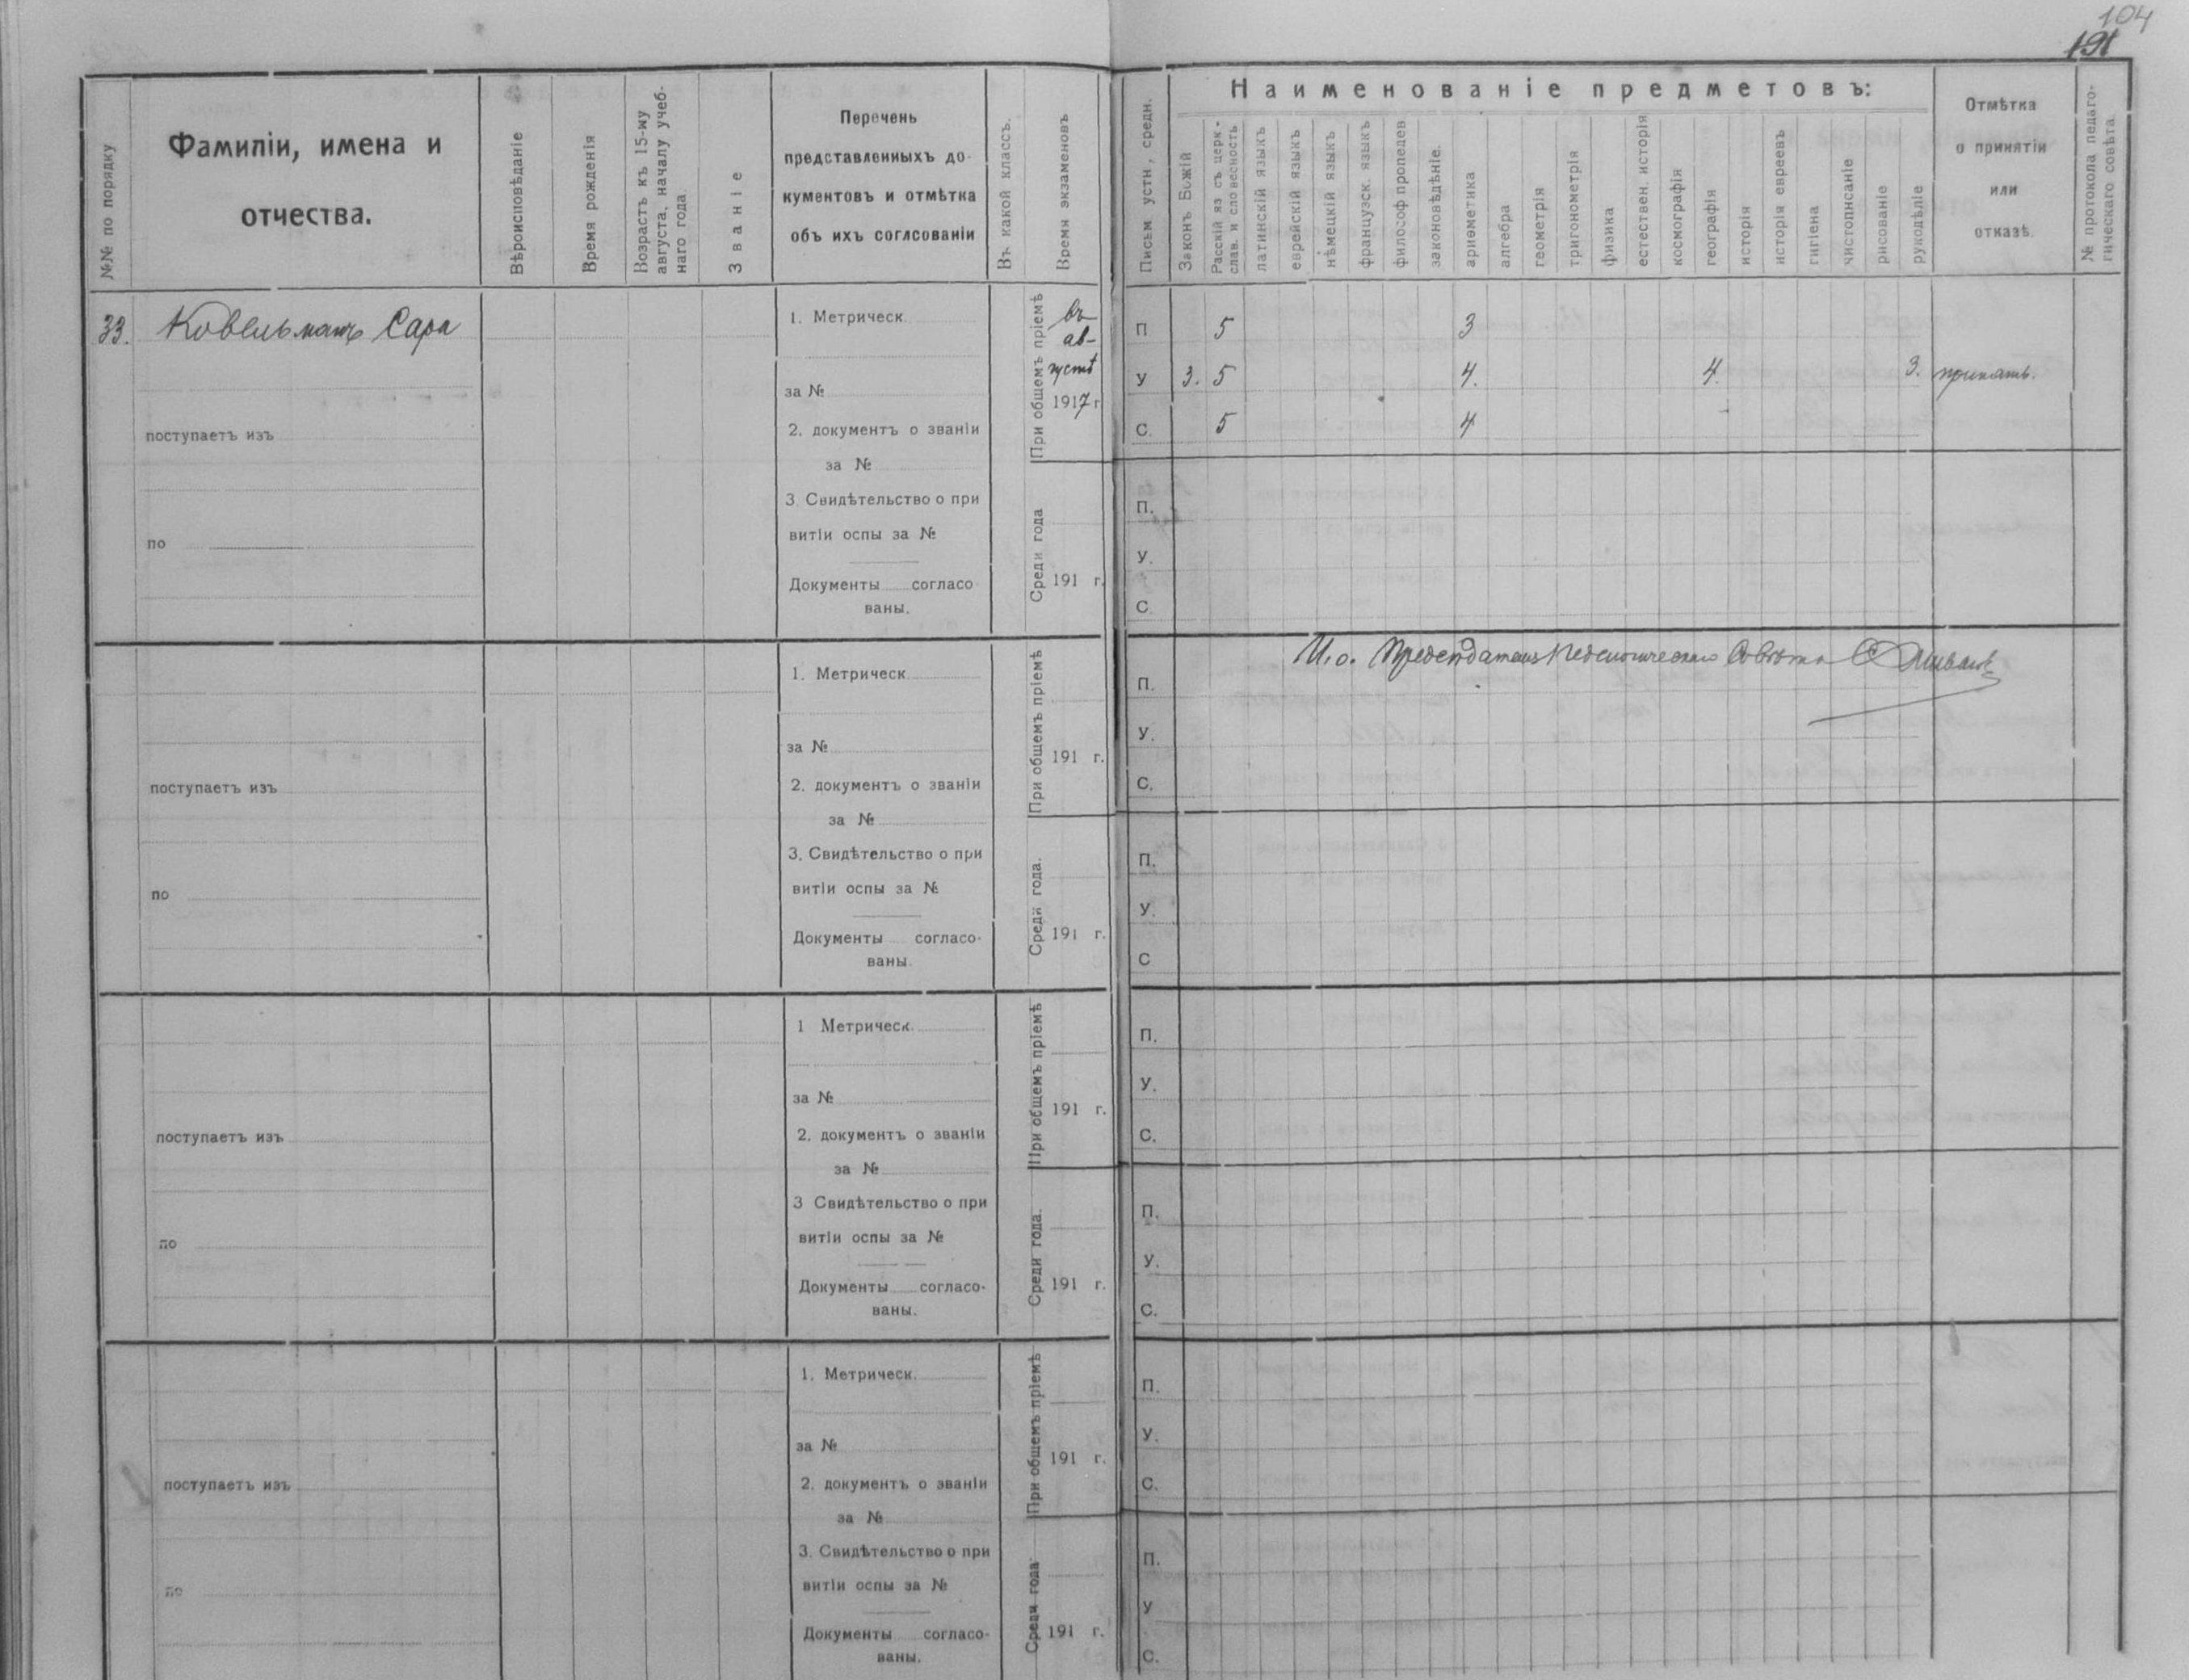 104
191
№№ по порядку
Фамиліи, имена и
отчества.
Вѣроисповѣданіе
Время рожденія
Возрастъ къ 15-му
августа, началу учеб-
наго года
Званіе
Перечень
представленныхъ до-
кументовъ и отмѣтка
объ ихъ согласованіи
Въ какой классъ.
Время экзаменовъ
Письм устн, средн.
Наименованіе предметовъ:
Законъ Божій
Расскій яз съ церк.-
слав. и словесность
латинскій языкъ
еврейскій языкъ
нѣмецкій языкъ
французск. языкъ
философ пропедев
законовѣдѣніе.
ариѳметика
алгебра
геометрія
тригонометрія
физика
естествен. исторія
космографія
географія
исторія
исторія евреевъ
гигіена
чистописаніе
рисованіе
рукодѣліе
Отмѣтка
о принятіи
или
отказѣ.
№ протокола педаго-
гическаго совѣта.
33. Ковельманъ Сара
поступаетъ изъ
по
1. Метрическ.
за №
2. документъ о званіи
за №
3. Свидѣтельство о при
витіи оспы за №
Документы согласо
ваны.
При общемъ пріемѣ
въ
ав-
густѣ
1917 г
Среди года
191 г.
П 5 3
У 3. 5 4. 4. 3. принять.
С. 5 4
П.
У.
С
И.о. Предсѣдателя Педагогическаго Совѣта
поступаетъ изъ
по
1. Метрическ
за №
2. документъ о званіи
за №
3. Свидѣтельство о при
витіи оспы за №
Документы согласо-
ваны.
При общемъ пріемѣ
191 г.
Среди года.
191 г.
П.
У.
С.
П.
У.
С
поступаетъ изъ
по
1 Метрическ.
за №
2. документъ о званіи
за №
3 Свидѣтельство о при
витіи оспы за №
Документы согласо-
ваны.
При общемъ пріемѣ
191 г.
Среди года.
191 г.
П.
У.
С.
П.
У.
С.
поступаетъ изъ
по
1. Метрическ.
за №
2. документъ о званіи
за №
3. Свидѣтельство о при
витіи оспы за №
Документы согласо-
ваны.
При общемъ пріемѣ
191 г.
Среди года
191 г.
П.
У.
С.
П.
У
С.